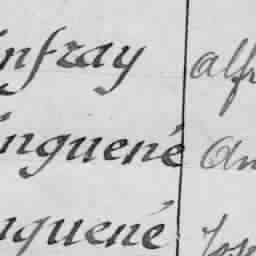 nfray alf
inguené an
nguené Jos